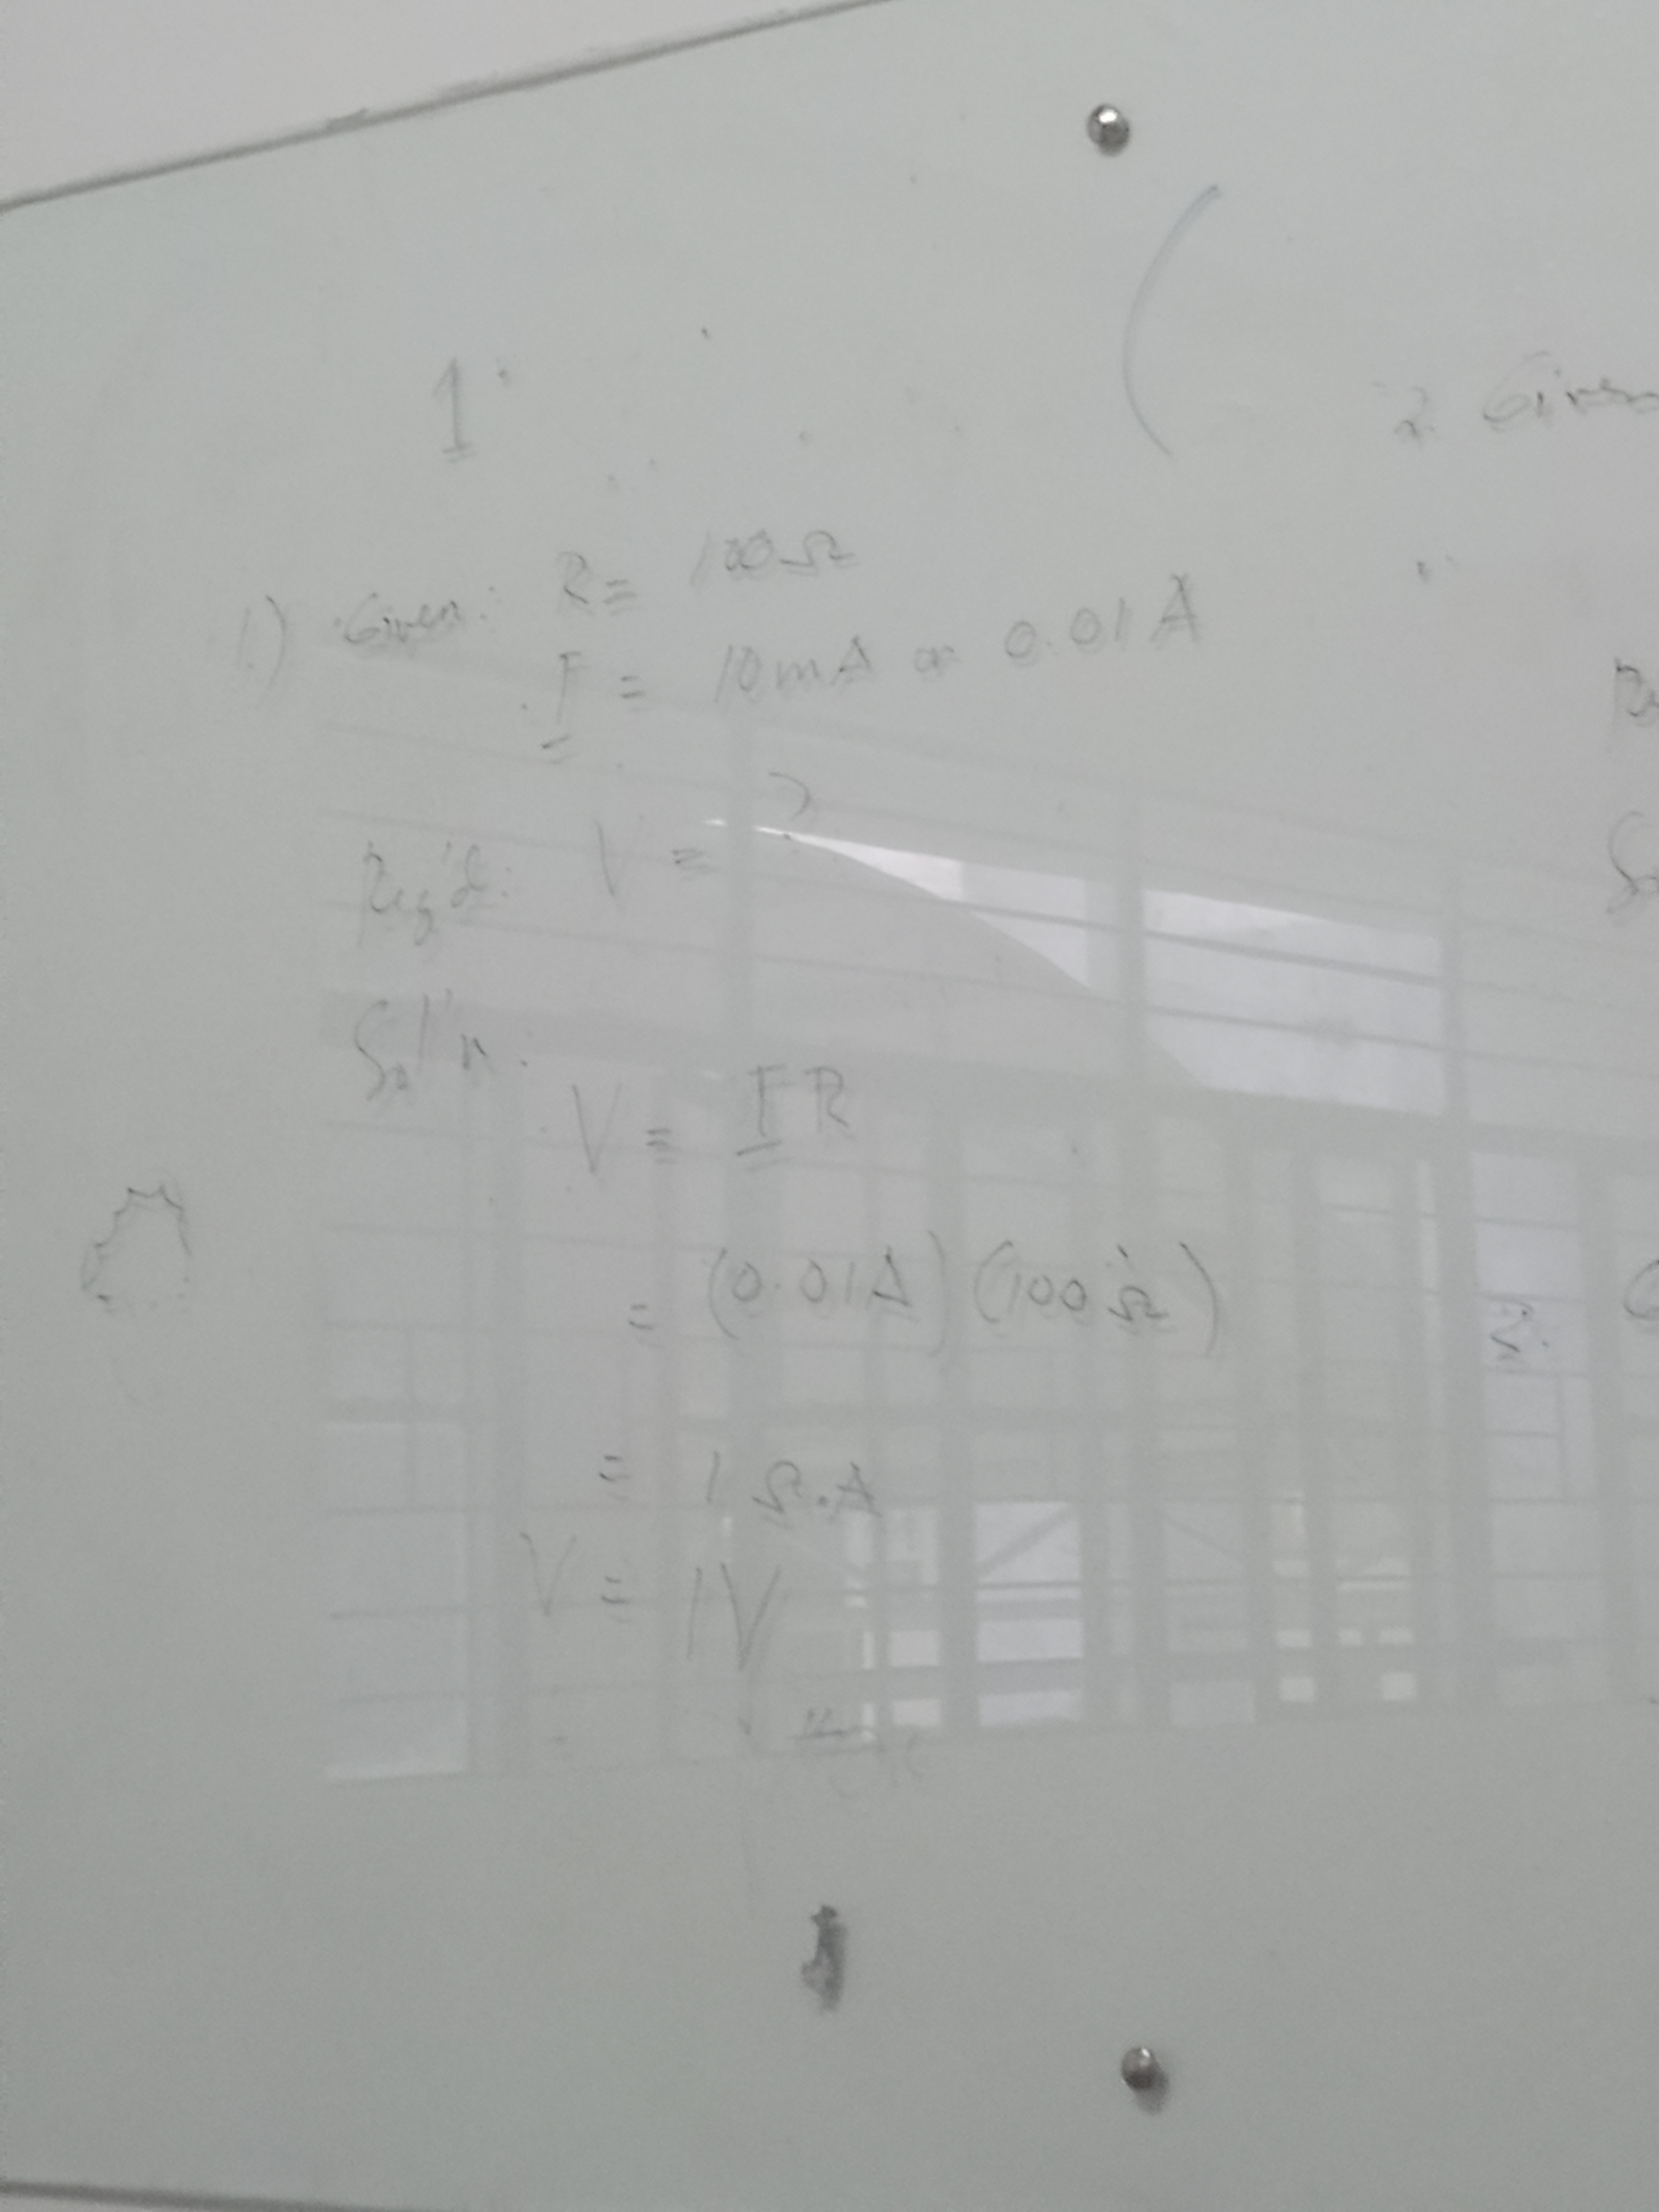 1
1.) Given: R = 100Ω
I = 10mA or 0.01A
Req'd: V = ?
Sol'n:
V = IR
= (0.01A) (100Ω)
= 1 Ω.A
V = 1V
2. Given
2.